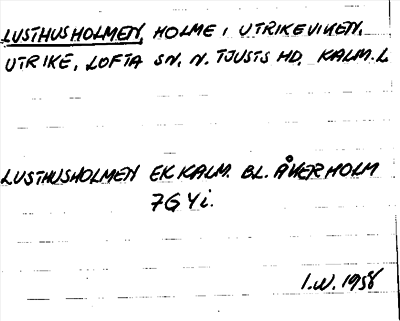 LUSTHUSHOLMEN, HOLME I UTRIKEVIKEN,
UTRIKE, LOFTA SN. N. TJUSTS HD. KALM. L
LUSTHUSHOLMEN EK KALM. BL. ÅKERHOLM
7G 4i.
I.W. 1958